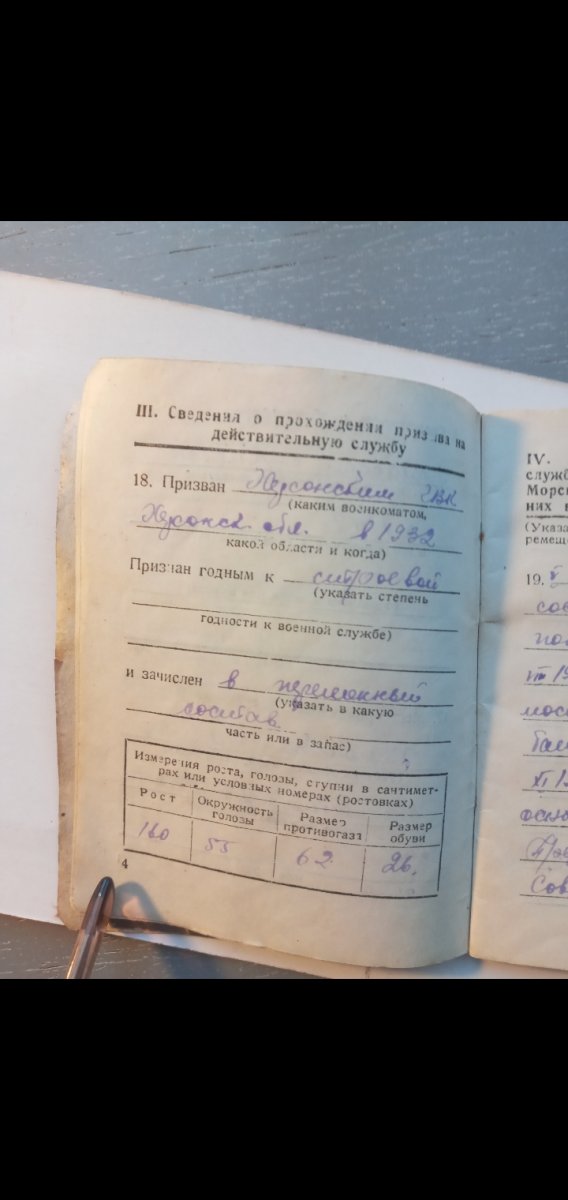 III. Сведения о прохождении призыва на
действительную службу
18. Призван Херсонским ГВК
(каким военкоматом,
Херсонск. обл. в 1932
какой области и когда)
Признан годным к строевой
(указать степень
годности к военной службе)
и зачислен в переменный
(указать в какую
состав
часть или в запас)
Измерения роста, головы, ступни в сантимет-
рах или условных номерах (ростовках)
Рост Окружность головы Размер противогаза Размер обуви
160 55 62 26.
4
IV.
служб
Морс
них в
(Указа
ремеще
19. V
сов
пол
VIII 19
мос
бат
XI 1
осно
Сов